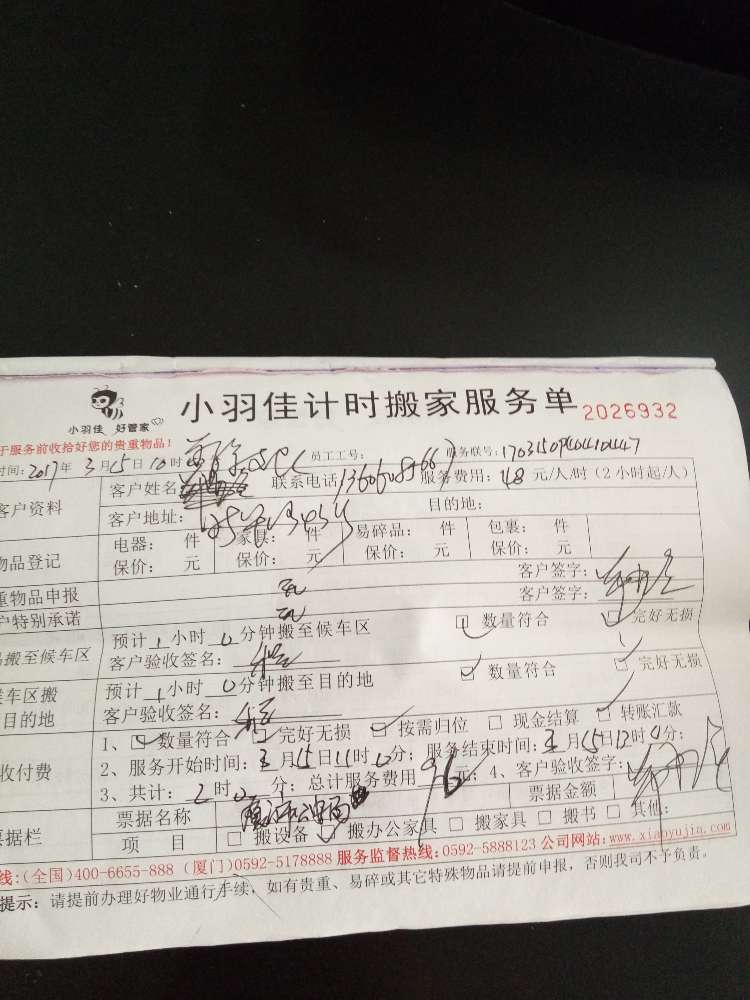 小羽佳 好管家
小羽佳计时搬家服务单 2026932
于服务前收拾好您的贵重物品!
时间: 2017年 3月15日10时 员工工号: 服务联号:
客户资料 客户姓名 联系电话 服务费用: 48 元/人/时 (2小时起/人)
客户地址: 目的地:
物品登记 电器: 件 家具: 件 易碎品: 件 包裹: 件
保价: 元 保价: 元 保价: 元 保价: 元
重物品申报 无 客户签字:
户特别承诺 无 客户签字:
搬至候车区 预计 1 小时 0 分钟搬至候车区 数量符合 完好无损
客户验收签名:
车区搬 预计 1 小时 0 分钟搬至目的地 数量符合 完好无损
目的地 客户验收签名:
收付费 1、数量符合 完好无损 按需归位 现金结算 转账汇款
2、服务开始时间: 3月15日11时0分; 服务结束时间: 3月15日12时0分;
3、共计: 2时0分; 总计服务费用 96 元; 4、客户验收签字:
票据栏 票据名称 票据金额
项 目 搬设备 搬办公家具 搬家具 搬书 其他:
线: (全国)400-6655-888 (厦门)0592-5178888 服务监督热线: 0592-5888123 公司网站: www.xiaoyujia.com
提示: 请提前办理好物业通行手续, 如有贵重、易碎或其它特殊物品请提前申报, 否则我司不予负责。